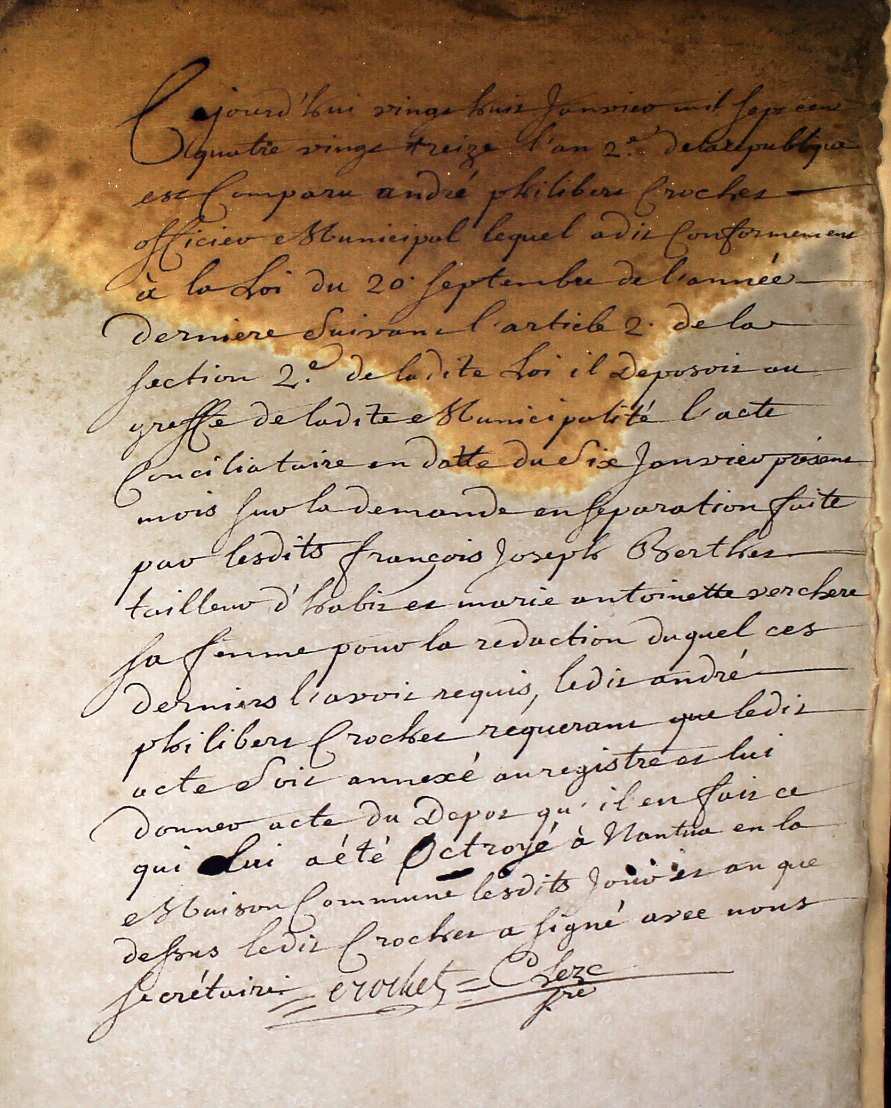 Cejourd'hui vingt huit Janvier mil sept cent
quatre vingt treize l'an 2.e de la republique
est Comparu andré philibert Crochet
officier Municipal lequel a dit Conformement
à la Loi du 20. septembre de l'année
derniere Suivant l'article 2. de la
section 2.e de ladite Loi il Deposoit au
greffe de ladite Municipalité l'acte
Conciliatoire en datte du Six Janvier présent
mois sur la demande en separation faite
par lesdits françois Joseph Berthet
tailleur d'habit et marie antoinette verchere
sa femme pour la redaction duquel ces
derniers l'avoit requis, ledit andré
philibert Crochet requerant que ledit
acte Soit annexé au registre et lui
donner acte du Depot qu'il en fait ce
qui lui a été Octroyé à Nantua en la
Maison Commune lesdits Jour et an que
dessus ledit Crochet a signé avec nous
secrétaire. crochet